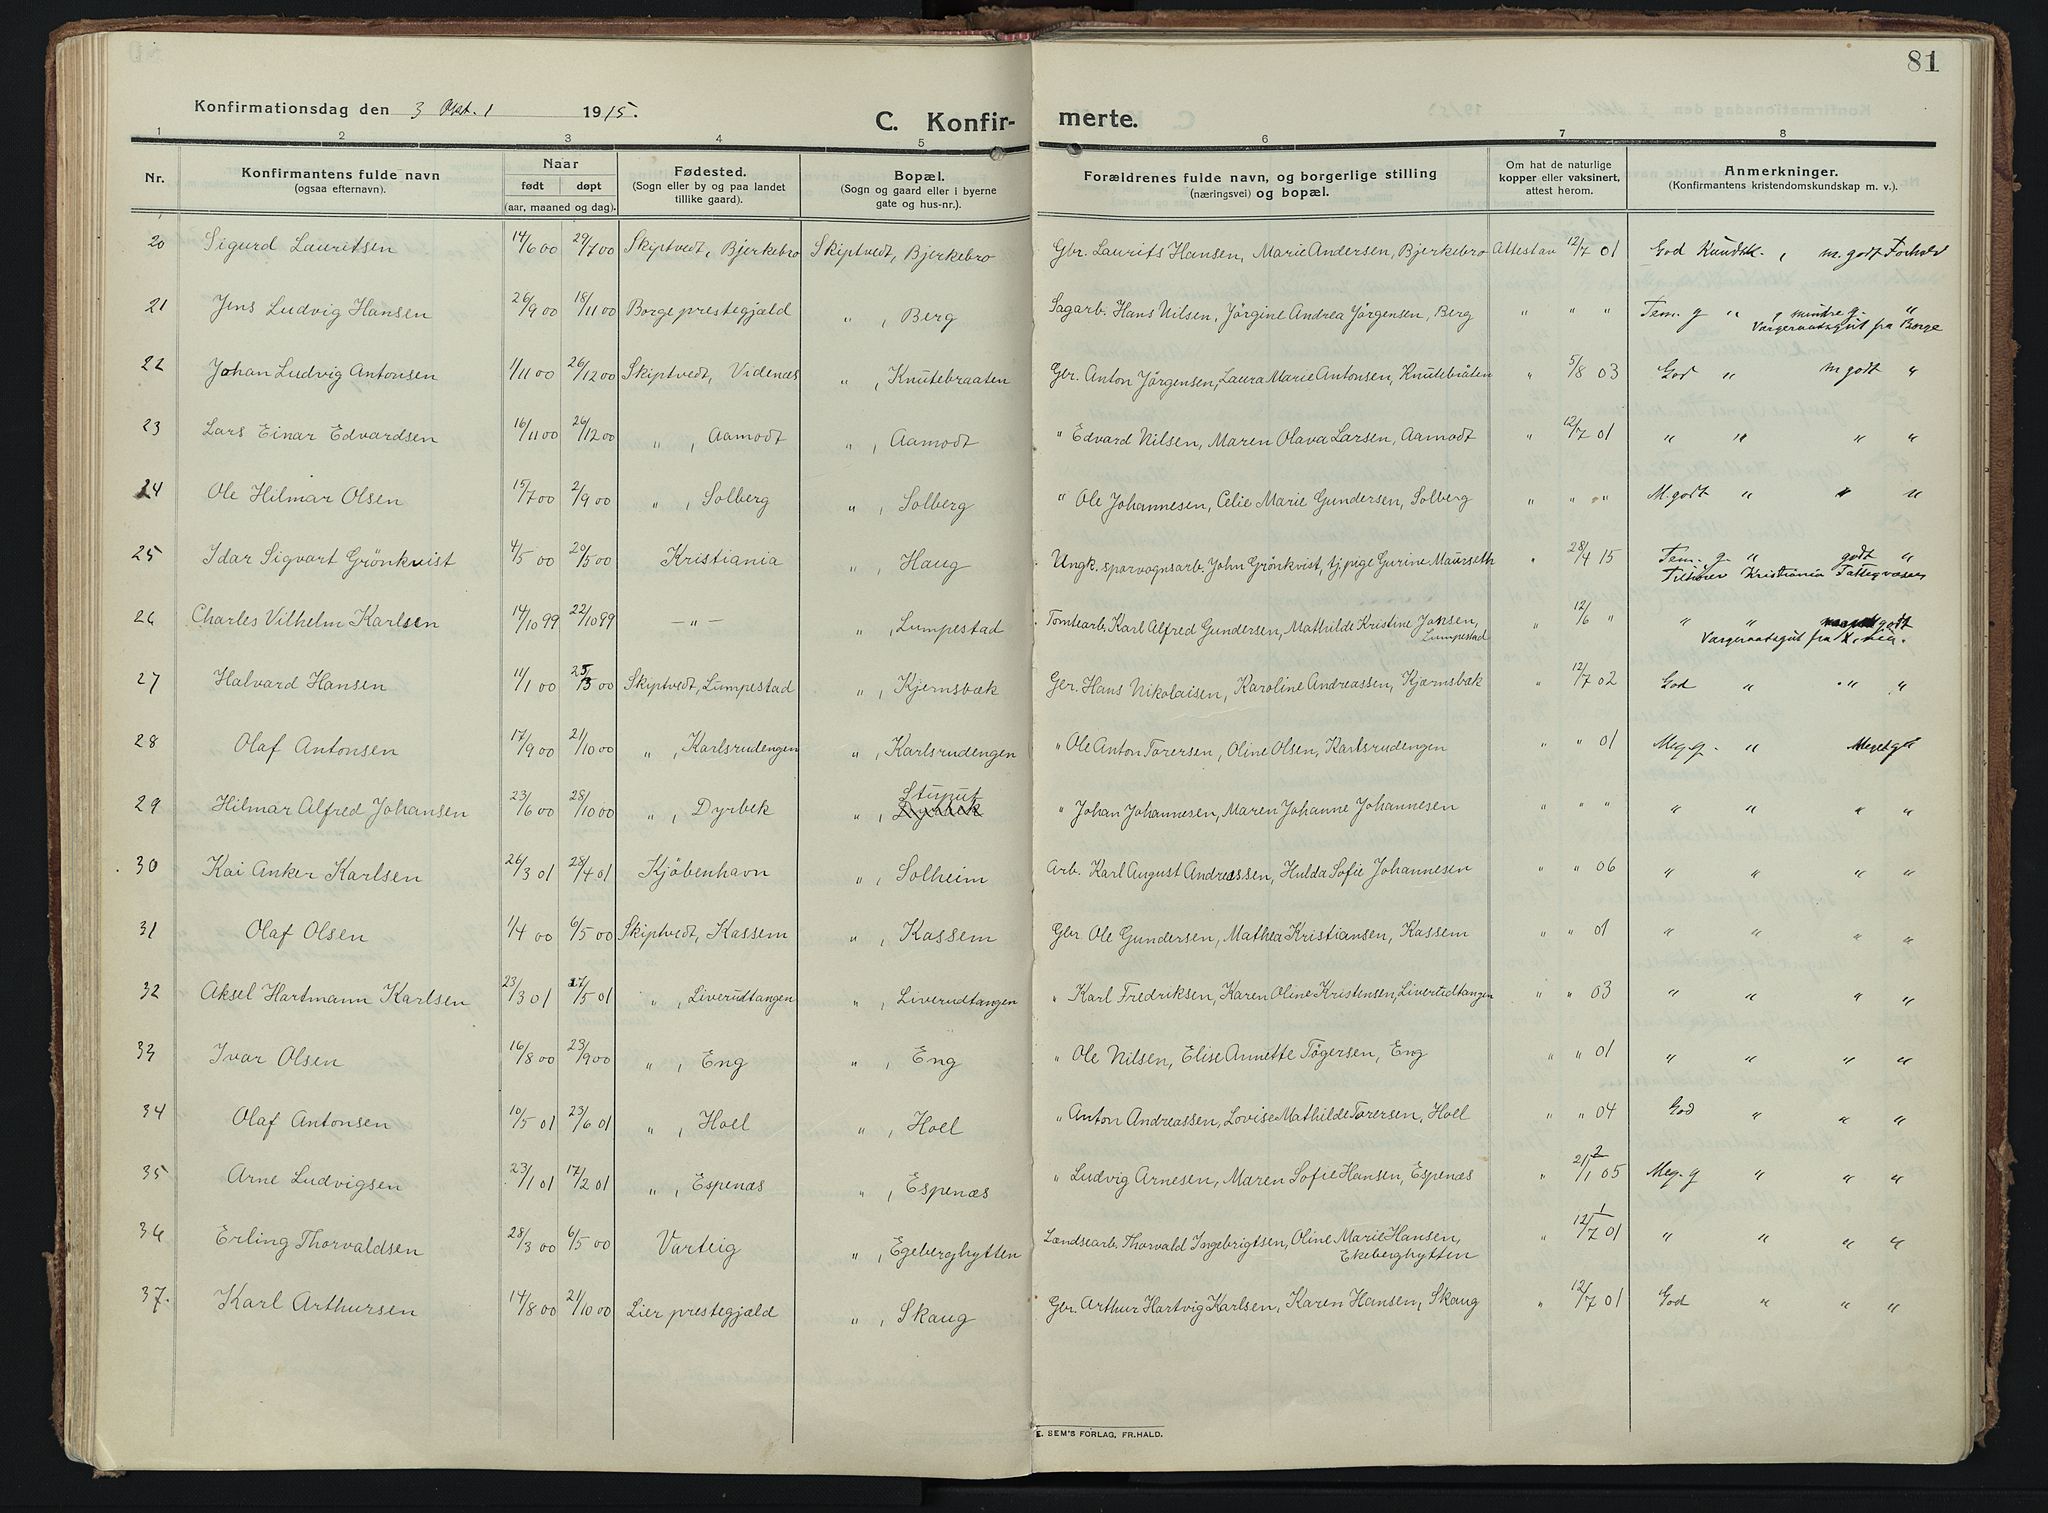 81
Konfirmationsdag den 3 Okt. 1 1915.
C. Konfirmerte.
1 2 3 4 5 6 7 8
Nr.
Konfirmantens fulde navn (ogsaa efternavn).
Naar født døpt (aar, maaned og dag).
Fødested. (Sogn eller by og paa landet tillike gaard).
Bopæl. (Sogn og gaard eller i byerne gate og hus-nr.).
Forældrenes fulde navn, og borgerlige stilling (næringsvei) og bopæl.
Om hat de naturlige kopper eller vaksinert, attest herom.
Anmerkninger. (Konfirmantens kristendomskundskap m. v.).
20 Sigurd Lauritsen 14/6 00 29/7 00 Skiptvedt, Bjerkebro Skiptvedt, Bjerkebro Gbr. Laurits Hansen, Marie Andersen, Bjerkebro Attest av 12/7 01 God Kundsk. , m. godt Forhold
21 Jens Ludvig Hansen 26/9 00 18/11 00 Borge prestegjæld " , Berg Sagarb. Hans Nilsen, Jörgine Andrea Jörgensen, Berg " " " Tem. g " , mindre g. "
Værgeraadsgut fra Borge
22 Johan Ludvig Antonsen 1/11 00 26/12 00 Skiptvedt, Videnæs " , Knutebraaten Gbr. Anton Jörgensen, Laura Marie Antonsen, Knutebråten " 5/8 03 God " m godt "
23 Lars Einar Edvardsen 16/11 00 26/12 00 " , Aamodt " , Aamodt " Edvard Nilsen, Maren Olava Larsen, Aamodt " 12/7 01 " " " "
24 Ole Hilmar Olsen 15/7 00 2/9 00 " , Solberg " , Solberg " Ole Johannesen, Celie Marie Gundersen, Solberg " " " M. godt " " "
25 Idar Sigvart Grönkvist 4/5 00 20/5 00 Kristiania " , Haug Ungk. sporvognsarb. John Grönkvist, tj. pige Gurine Maurseth " 28/4 15 Tem. g. " godt "
Tilhører Kristiania Fattigvæsen
26 Charles Vilhelm Karlsen 14/10 99 22/10 99 — " — " , Lumpestad Tomtearb. Karl Alfred Gundersen, Mathilde Kristine Jansen, Lumpestad " 12/6 " " " godt
Værgeraadsgut fra K.nia.
27 Halvard Hansen 11/1 00 25/3 00 Skiptvedt, Lumpestad " , Kjernsbæk Gbr. Hans Nikolaisen, Karoline Andreassen, Kjærnsbæk " 12/7 02 God " " "
28 Olaf Antonsen 17/9 00 21/10 00 " , Karlsrudengen " , Karlsrudengen " Ole Anton Torersen, Oline Olsen, Karlsrudengen " " 01 Meg. g. " Meget g.
29 Hilmar Alfred Johansen 23/6 00 28/10 00 " , Dyrbek " , Stuput Dyrbæk " Johan Johannesen, Maren Johanne Johannesen " " " " " " "
30 Kai Anker Karlsen 26/3 01 28/4 01 Kjöbenhavn " , Solheim Arb. Karl August Andreassen, Hulda Sofie Johannesen " " 06 " " " "
31 Olaf Olsen 1/4 00 6/5 00 Skiptvedt, Kassem " , Kassem Gbr Ole Gundersen, Mathea Kristiansen, Kassem " " 01 " " " "
32 Aksel Hartmann Karlsen 23/3 01 27/5 01 " , Liverudtangen " , Liverudtangen " Karl Fredriksen, Karen Oline Kristensen, Liverudtangen " " 03 " " " "
33 Ivar Olsen 16/8 00 23/9 00 " , Eng " , Eng " Ole Nilsen, Elise Annette Tögersen, Eng " " 01 " " " "
34 Olaf Antonsen 10/5 01 23/6 01 " , Hoel " , Hoel " Anton Andreassen, Lovise Mathilde Torersen, Hoel " " 04 God " " "
35 Arne Ludvigsen 23/1 01 17/2 01 " , Espenæs " , Espenæs " Ludvig Arnesen, Maren Sofie Hansen, Espenæs " 2/1 05 Meg. g " " "
36 Erling Thorvaldsen 28/3 00 6/5 00 Varteig " , Egeberghytten Landsearb. Thorvald Ingebrigtsen, Oline Marie Hansen, Ekeberghytten " 12/7 01 " " " "
37. Karl Arthursen 14/8 00 21/10 00 Lier prestegjæld " , Skaug Gbr. Arthur Hartvig Karlsen, Karen Hansen, Skaug " 12/7 01 God " " "
E. SEM'S FORLAG, FR.HALD.